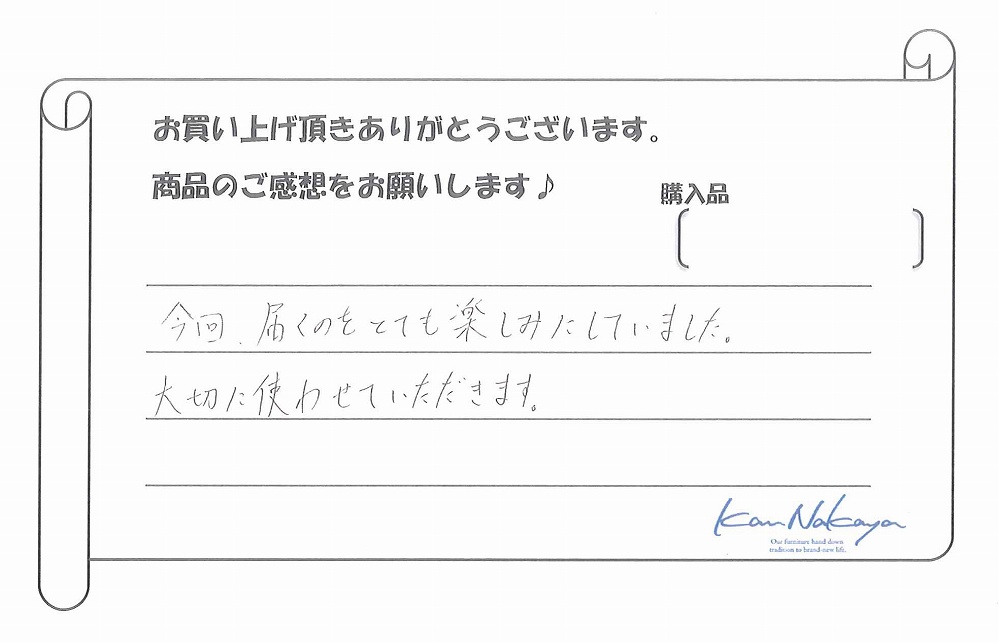 お買い上げ頂きありがとうございます。
商品のご感想をお願いします♪
購入品
今回、届くのをとても楽しみにしていました。
大切に使わせていただきます。
Kan Nakaya
Our furniture hand down
tradition to brand-new life.